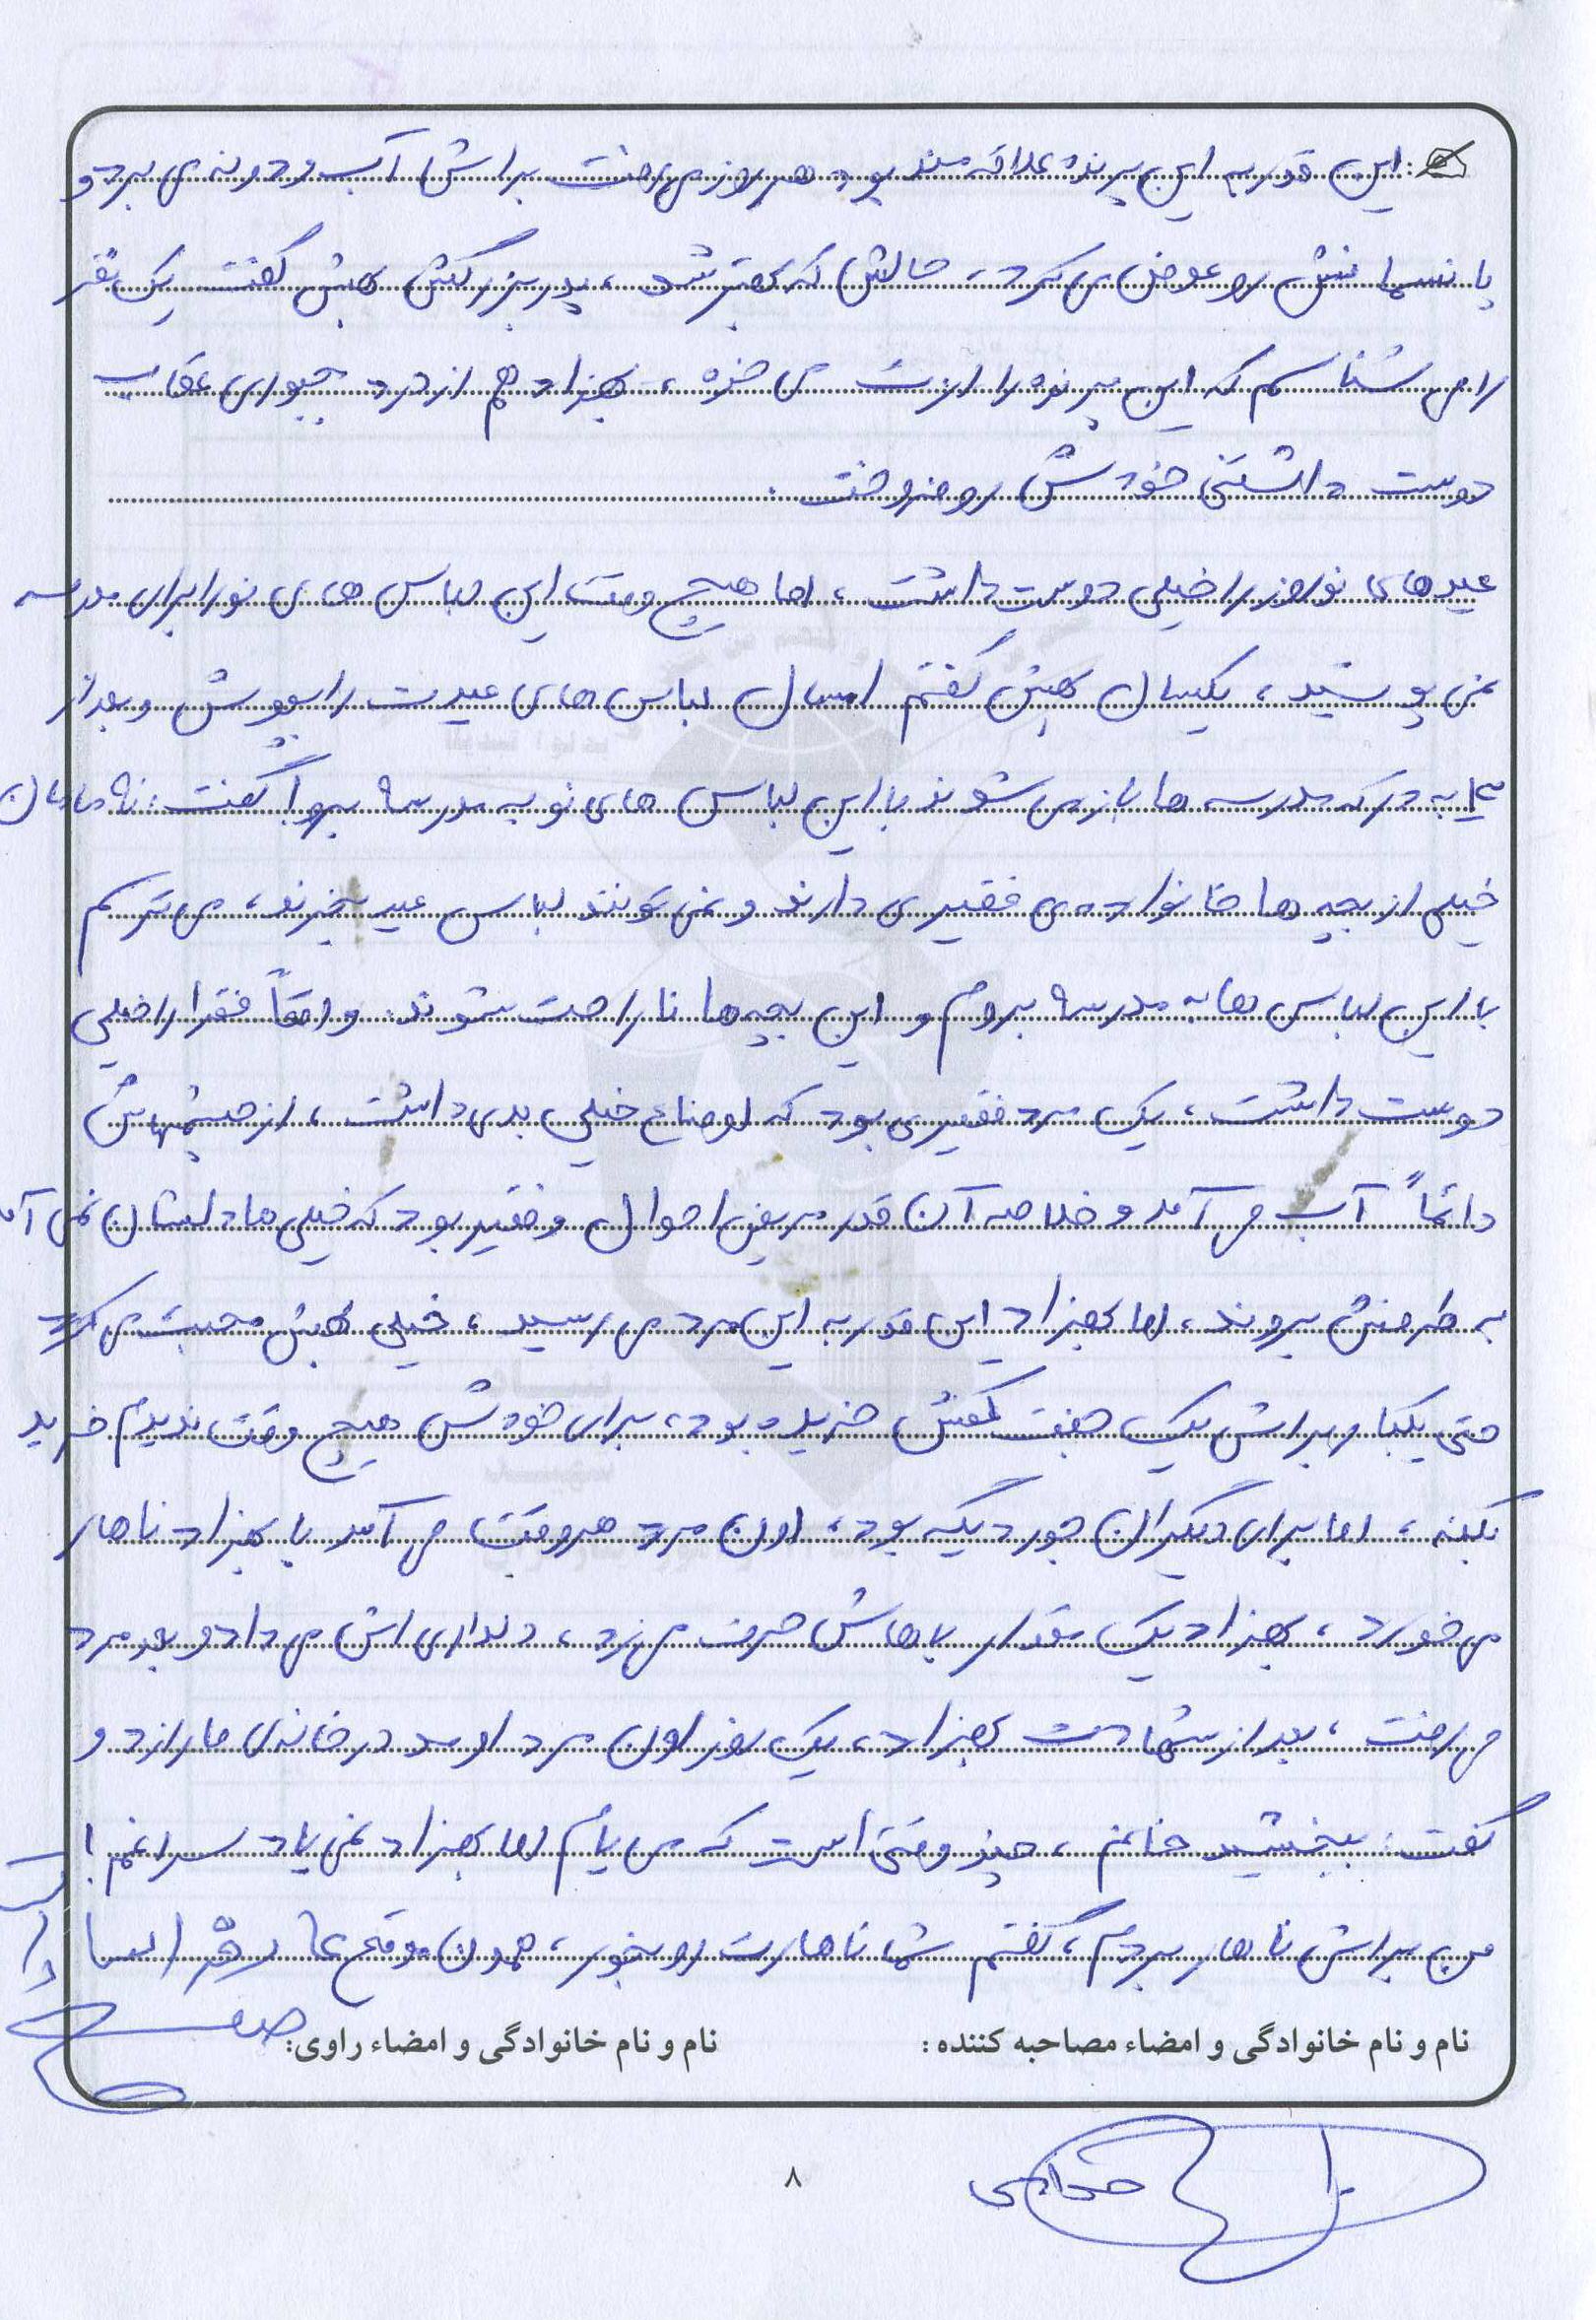 این قدر به این پرنده علاقه مند بود هر روز می رفت براش آب و دونه می برد و
پانسمانش رو عوض می کرد، حالش که بهتر شد، پدربزرگش بهش گفت یک نفر
را می شناسم که این پرنده را ازت می خره، بهزاد هم از درد مجبوری عقاب
دوست داشتنی خودش رو فروخت.
عیدهای نوروز را خیلی دوست داشت، اما هیچ وقت این لباس های نو را برای مدرسه
نمی پوشید، یکسال بهش گفتم امسال لباس های عیدت را بپوش و بعد از
۱۳ به در که مدرسه ها باز می شوند با این لباس های نو به مدرسه برو! گفت: نه مامان
خیلی از بچه ها خانواده ی فقیری دارند و نمی تونند لباس عید بخرند، می ترسم
با این لباس ها به مدرسه بروم و این بچه ها ناراحت شوند. واقعاً فقرا را خیلی
دوست داشت، یک مرد فقیری بود که اوضاع خیلی بدی داشت، از چشمهاش
دائماً آب می آمد و خلاصه آن قدر مریض احوال و فقیر بود که خیلی ها دلشان نمی آمد
به طرفش بروند، اما بهزاد این قدر به این مرد می رسید، خیلی بهش محبت می کرد
حتی یکبار براش یک جفت کفش خریده بود، برای خودش هیچ وقت ندیدم خرید
بکنه، اما برای دیگران جور دیگه بود، اون مرد هر وقت می آمد با بهزاد ناهار
می خورد، بهزاد یک مقدار باهاش حرف می زد، دلداری اش می داد و بعد مرد
می رفت، بعد از شهادت بهزاد، یک روز اون مرد اومد در خانه ی ما را زد و
گفت: ببخشید خانم، چند وقتی است که می یام اما بهزاد نمی یاد سراغم!
من براش ناهار بردم، گفتم شما ناهارت رو بخور، همون موقع
نام و نام خانوادگی و امضاء مصاحبه کننده :
نام و نام خانوادگی و امضاء راوی:
۸